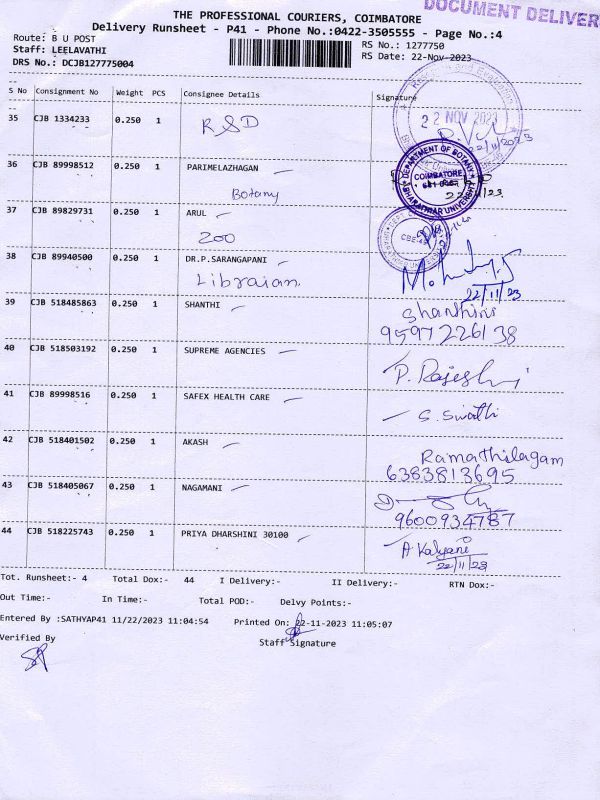 DOCUMENT DELIVER
THE PROFESSIONAL COURIERS, COIMBATORE
Delivery Runsheet - P41 - Phone No.:0422-3505555 - Page No.:4
Route: B U POST
RS No.: 1277750
Staff: LEELAVATHI
RS Date: 22-Nov-2023
DRS No.: DCJB127775004
S No Consignment No Weight PCS Consignee Details Signature
22 NOV 2023
35 CJB 1334233 0.250 1 R&D
22/11/2023
36 CJB 89998512 0.250 1 PARIMELAZHAGAN
Botany
DEPARTMENT OF BOTANY
COIMBATORE
BHARATHIAR UNIVERSITY
37 CJB 89829731 0.250 1 ARUL
ZOO
38 CJB 89940500 0.250 1 DR.P.SARANGAPANI
Libraian
22/11/23
39 CJB 518485863 0.250 1 SHANTHI Shanthini
9597226138
40 CJB 518503192 0.250 1 SUPREME AGENCIES P. Rajeshwi
41 CJB 89998516 0.250 1 SAFEX HEALTH CARE S. Swathi
42 CJB 518401502 0.250 1 AKASH Ramathilagam
6383813695
43 CJB 518405067 0.250 1 NAGAMANI
9600934787
44 CJB 518225743 0.250 1 PRIYA DHARSHINI 30100 A Kalyani
22/11/23
Tot. Runsheet:- 4 Total Dox:- 44 I Delivery:- II Delivery:- RTN Dox:-
Out Time:- In Time:- Total POD:- Delvy Points:-
Entered By :SATHYAP41 11/22/2023 11:04:54 Printed On: 22-11-2023 11:05:07
Verified By Staff Signature